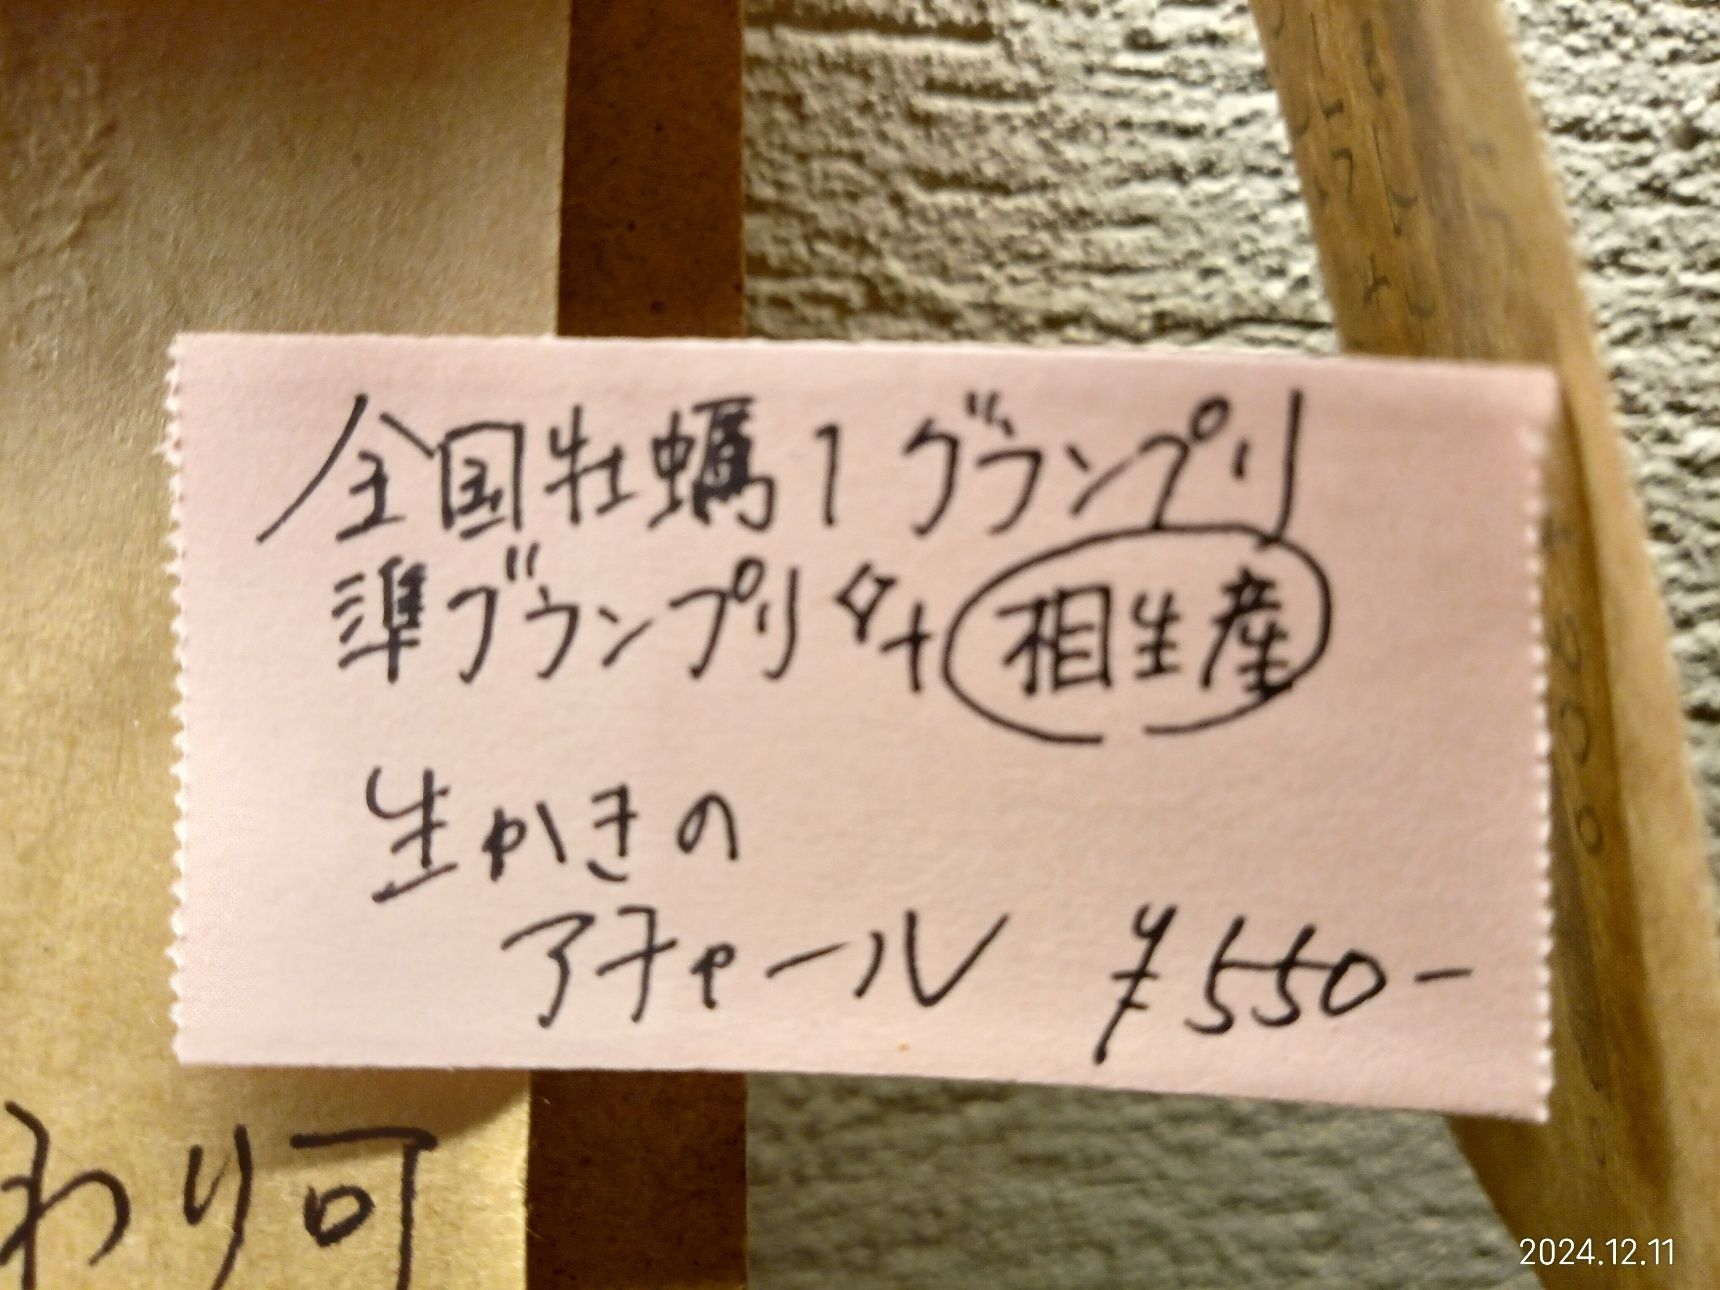 全国牡蠣1グランプリ
準グランプリ 相生産
生かきの
アチャール ¥550-
わり可
2024.12.11